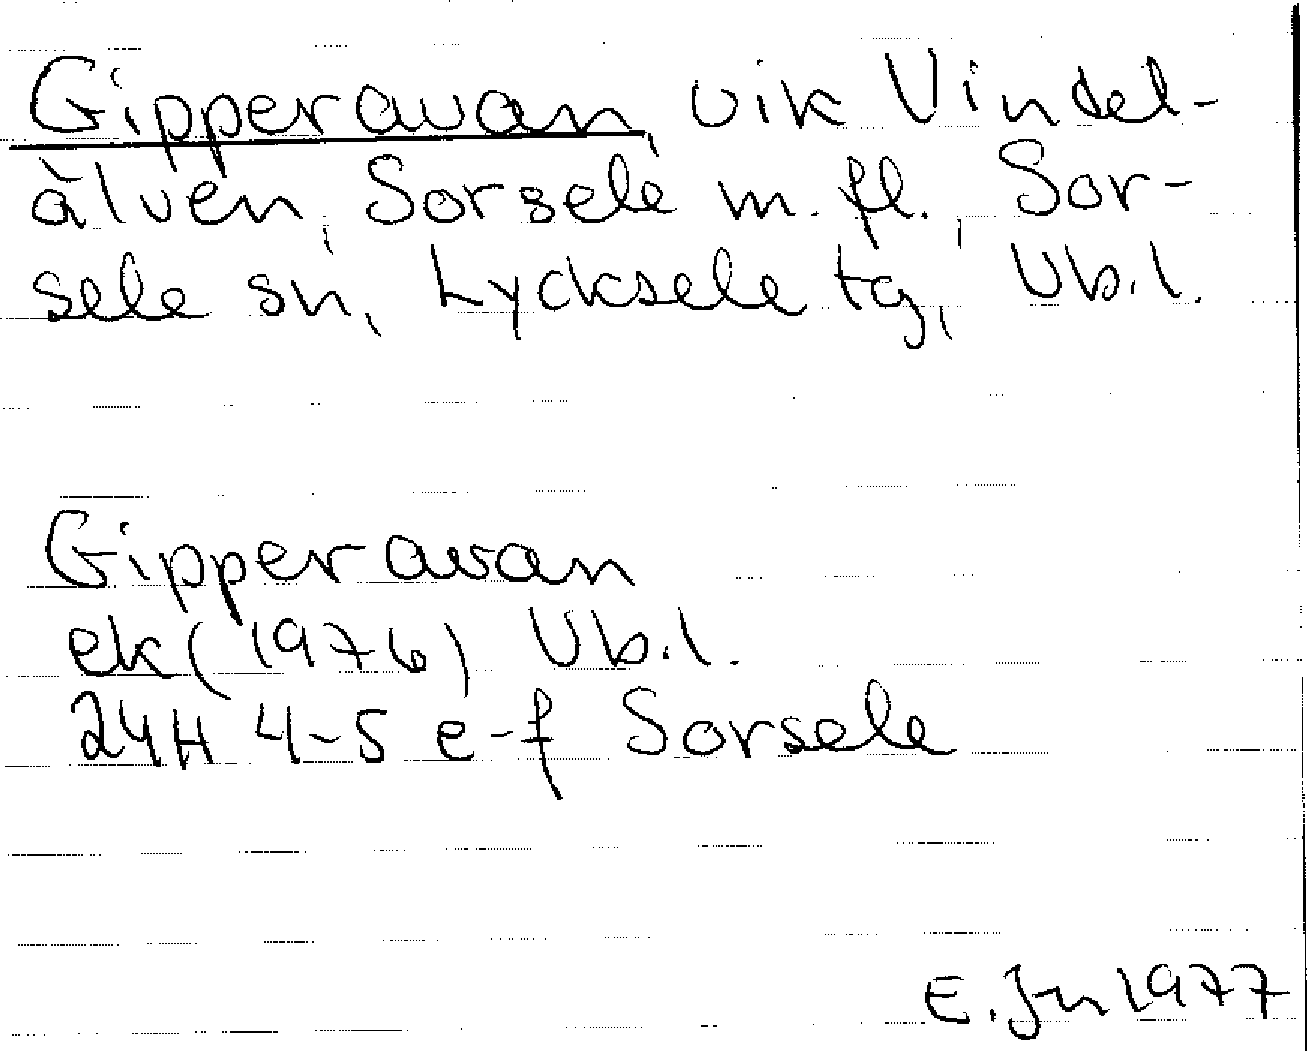 Gipperavan, vik Vindel-
älven, Sorsele m. fl., Sor-
sele sn, Lycksele tg, Vb.l.
Gipperavan
ek (1976) Vb.l.
24H 4-5 e-f Sorsele
E. Jn 1977